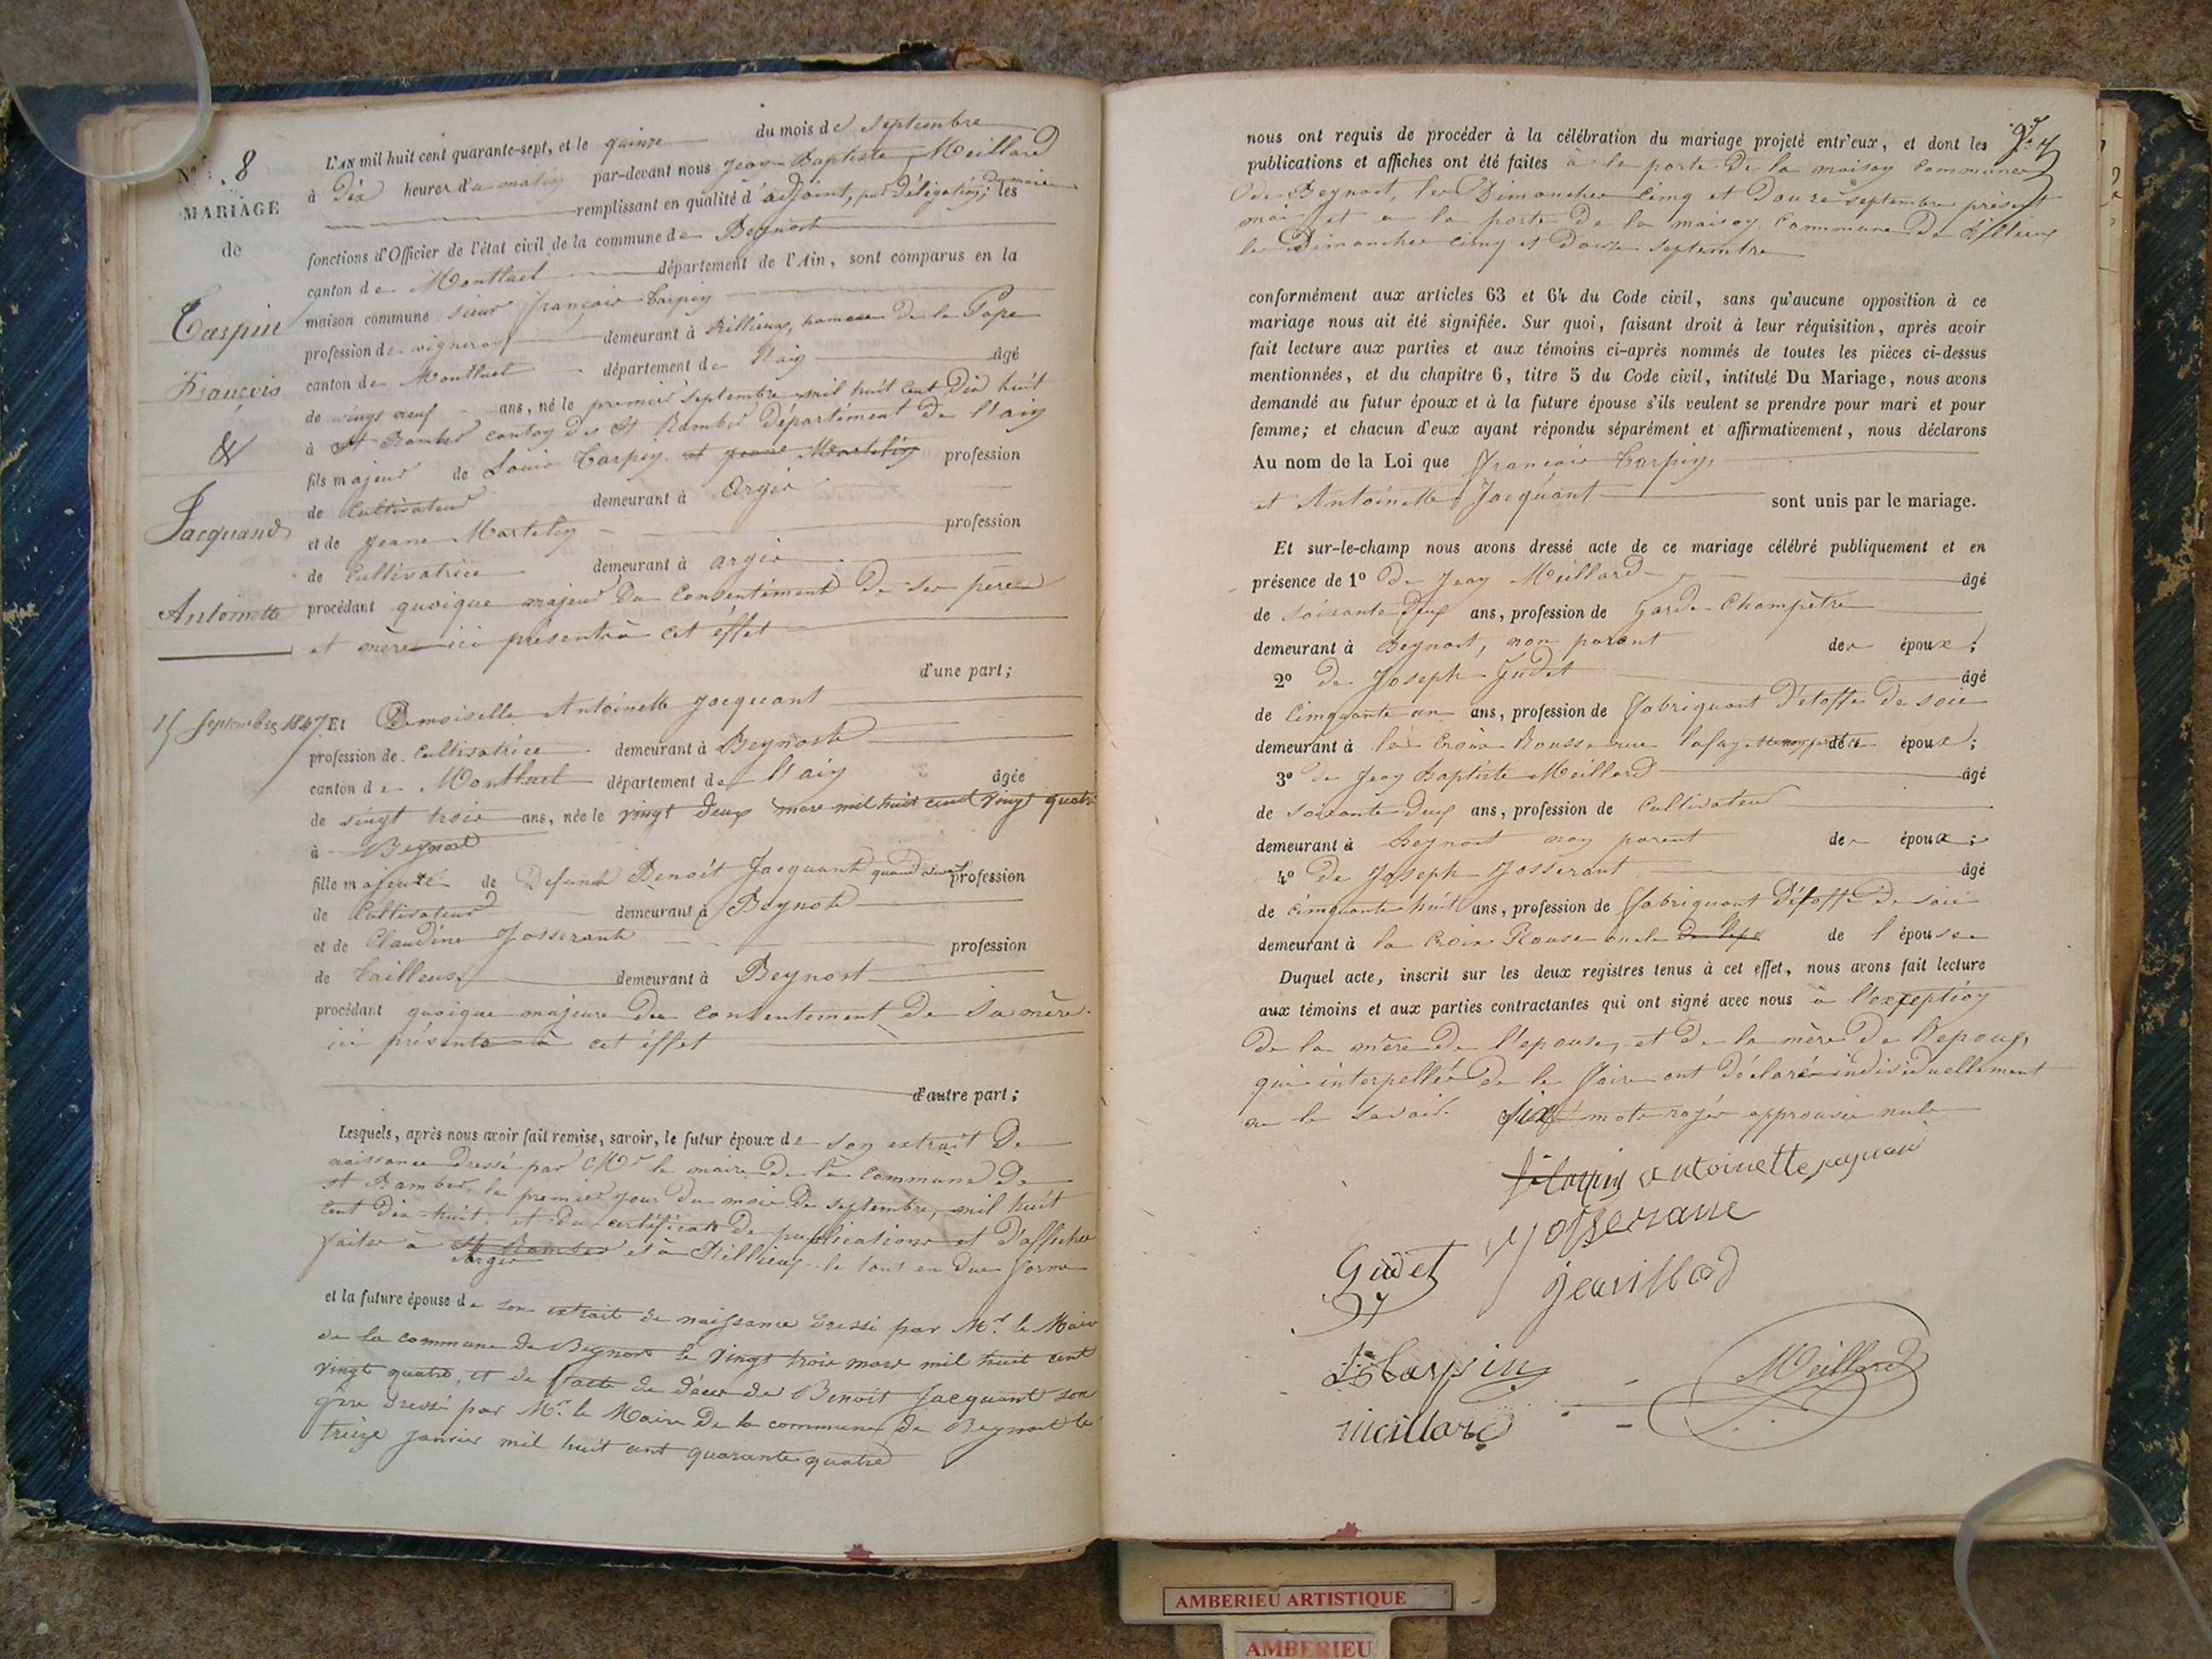 N° 8
MARIAGE
de
Carpin
François
&
Jacquand
Antoinette
15 Septembre 1847
L'AN mil huit cent quarante-sept, et le quinze du mois de septembre
à Dix heures du matin par-devant nous Jean Baptiste Meillard
remplissant en qualité d'adjoint, par délégation du maire les
fonctions d'Officier de l'état civil de la commune de Beynost
canton de Montluel département de l'Ain, sont comparus en la
maison commune sieur François Carpin
profession de vigneron demeurant à Rillieux, hameau de la Pape
canton de Montluel département de l'ain âgé
de vingt neuf ans, né le premier septembre mil huit cent dix huit
à St Rambert canton de St Rambert Département de l'ain
fils majeur de Louis Carpin et Jeane Martelin profession
de Cultivateur demeurant à Argis
et de Jeane Martelin profession
de Cultivatrice demeurant à argis
procédant quoique majeur du Consentement de ses père
et mère ici présents à cet éffet
d'une part;
Et Demoiselle Antoinette Jacquant
profession de Cultivatrice demeurant à Beynost
canton de Montluel département de l'ain âgée
de vingt trois ans, née le vingt deux mars mil huit cent vingt quatre
à Beynost
fille majeure de Defunt Benoît Jacquant quand vivait profession
de Cultivateur demeurant à Beynost
et de Claudine Josserant profession
de Tailleuse demeurant à Beynost
procédant quoique majeure du Consentement de sa mère
ici présente à cet éffet
d'autre part;
Lesquels, après nous avoir fait remise, savoir, le futur époux de son extrait de
naissance dressé par Mr le maire de la Commune de
St Rambert, le premier jour du mois de septembre, mil huit
cent dix-huit, et du certificat de publications et d'affiches
faites à St Rambert et à Rillieux le tout en due forme
Argis
et la future épouse de son extrait de naissance dressé par Mr le Maire
de la commune de Beynost le vingt trois mars mil huit cent
vingt quatre, et de l'acte de décès de Benoît Jacquant son
père dressé par Mr le Maire de la commune de Beynost le
treize janvier mil huit cent quarante quatre
nous ont requis de procéder à la célébration du mariage projeté entr'eux, et dont les
publications et affiches ont été faites à la porte de la maison Commune
de Beynost, les Dimanches cinq et douze septembre présent
mois et à la porte de la maison Commune de Rillieux
les Dimanches cinq et douze septembre
conformément aux articles 63 et 64 du Code civil, sans qu'aucune opposition à ce
mariage nous ait été signifiée. Sur quoi, faisant droit à leur réquisition, après avoir
fait lecture aux parties et aux témoins ci-après nommés de toutes les pièces ci-dessus
mentionnées, et du chapitre 6, titre 5 du Code civil, intitulé Du Mariage, nous avons
demandé au futur époux et à la future épouse s'ils veulent se prendre pour mari et pour
femme; et chacun d'eux ayant répondu séparément et affirmativement, nous déclarons
Au nom de la Loi que François Carpin
et Antoinette Jacquant sont unis par le mariage.
Et sur-le-champ nous avons dressé acte de ce mariage célébré publiquement et en
présence de 1° de Jean Meillard âgé
de soixante deux ans, profession de Garde Champêtre
demeurant à Beynost, non parent des époux;
2° de Joseph Gudet âgé
de Cinquante un ans, profession de fabriquant d'étoffe de soie
demeurant à la Croix Rousse rue lafayette époux;
3° de Jean Baptiste Meillard âgé
de soixante deux ans, profession de Cultivateur
demeurant à Beynost non parent des époux;
4° de Joseph Josserant âgé
de cinquante huit ans, profession de fabriquant d'étoffe de soie
demeurant à la Croix Rousse oncle de l'épouse
Duquel acte, inscrit sur les deux registres tenus à cet effet, nous avons fait lecture
aux témoins et aux parties contractantes qui ont signé avec nous à l'exception
de la mère de l'épouse, et de la mère de l'époux,
qui interpellés de le faire ont déclaré individuellement
ne le savoir. Six mots rayés approuvés nuls
antoinette
Josserane
Gudet
Carpin
Meillard
meillard
AMBERIEU ARTISTIQUE
AMBERIEU